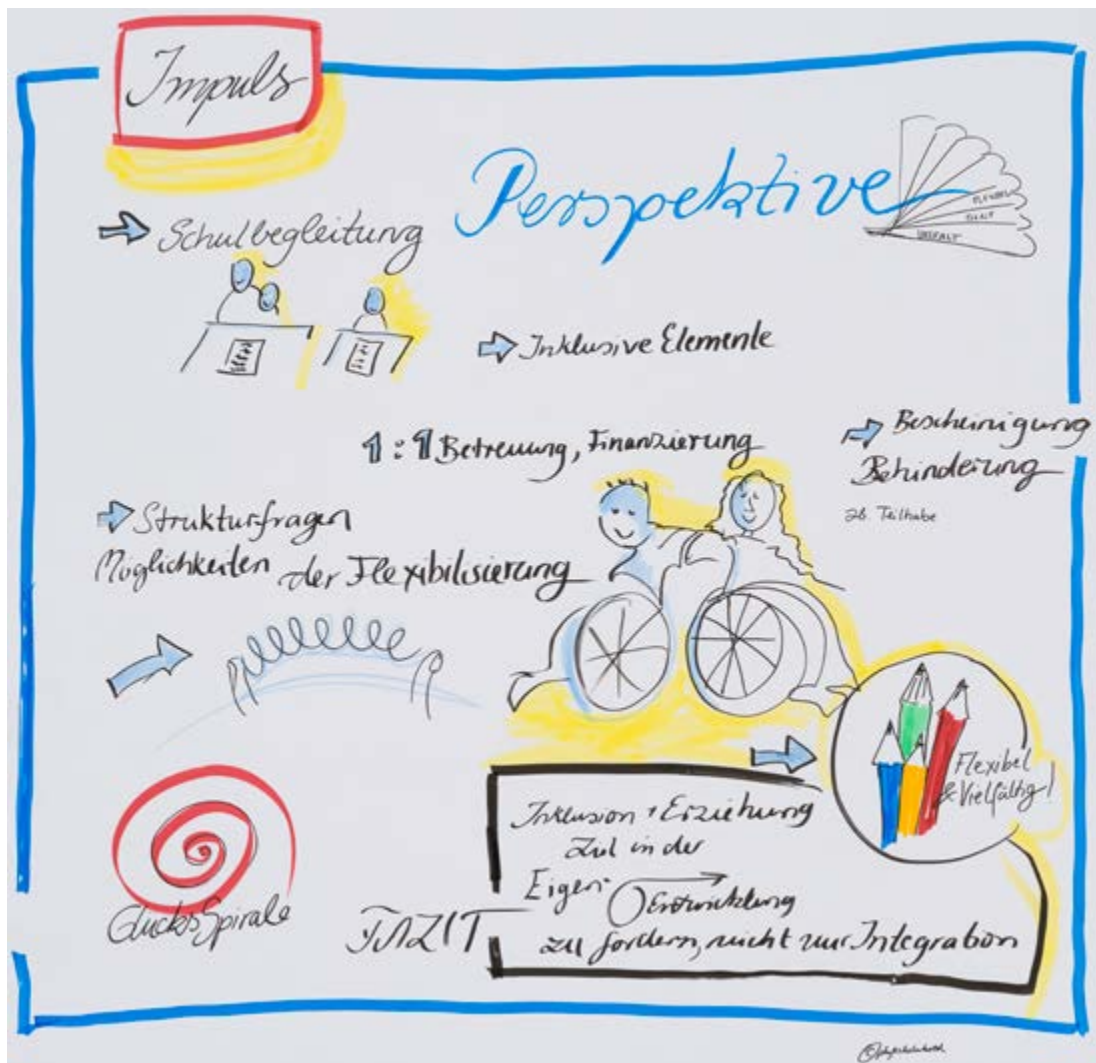 Impuls
Perspektive
FLEXIBEL
VIELFALT
Schulbegleitung
Inklusive Elemente
1:1 Betreuung, Finanzierung
Bescheinigung
Behinderung
zb. Teilhabe
Strukturfragen
Möglichkeiten der Flexibilisierung
Flexibel
& Vielfältig!
Inklusion + Erziehung
Ziel in der
Eigen-
Entwicklung
zu fördern, nicht nur Integration
GlücksSpirale
FAZIT